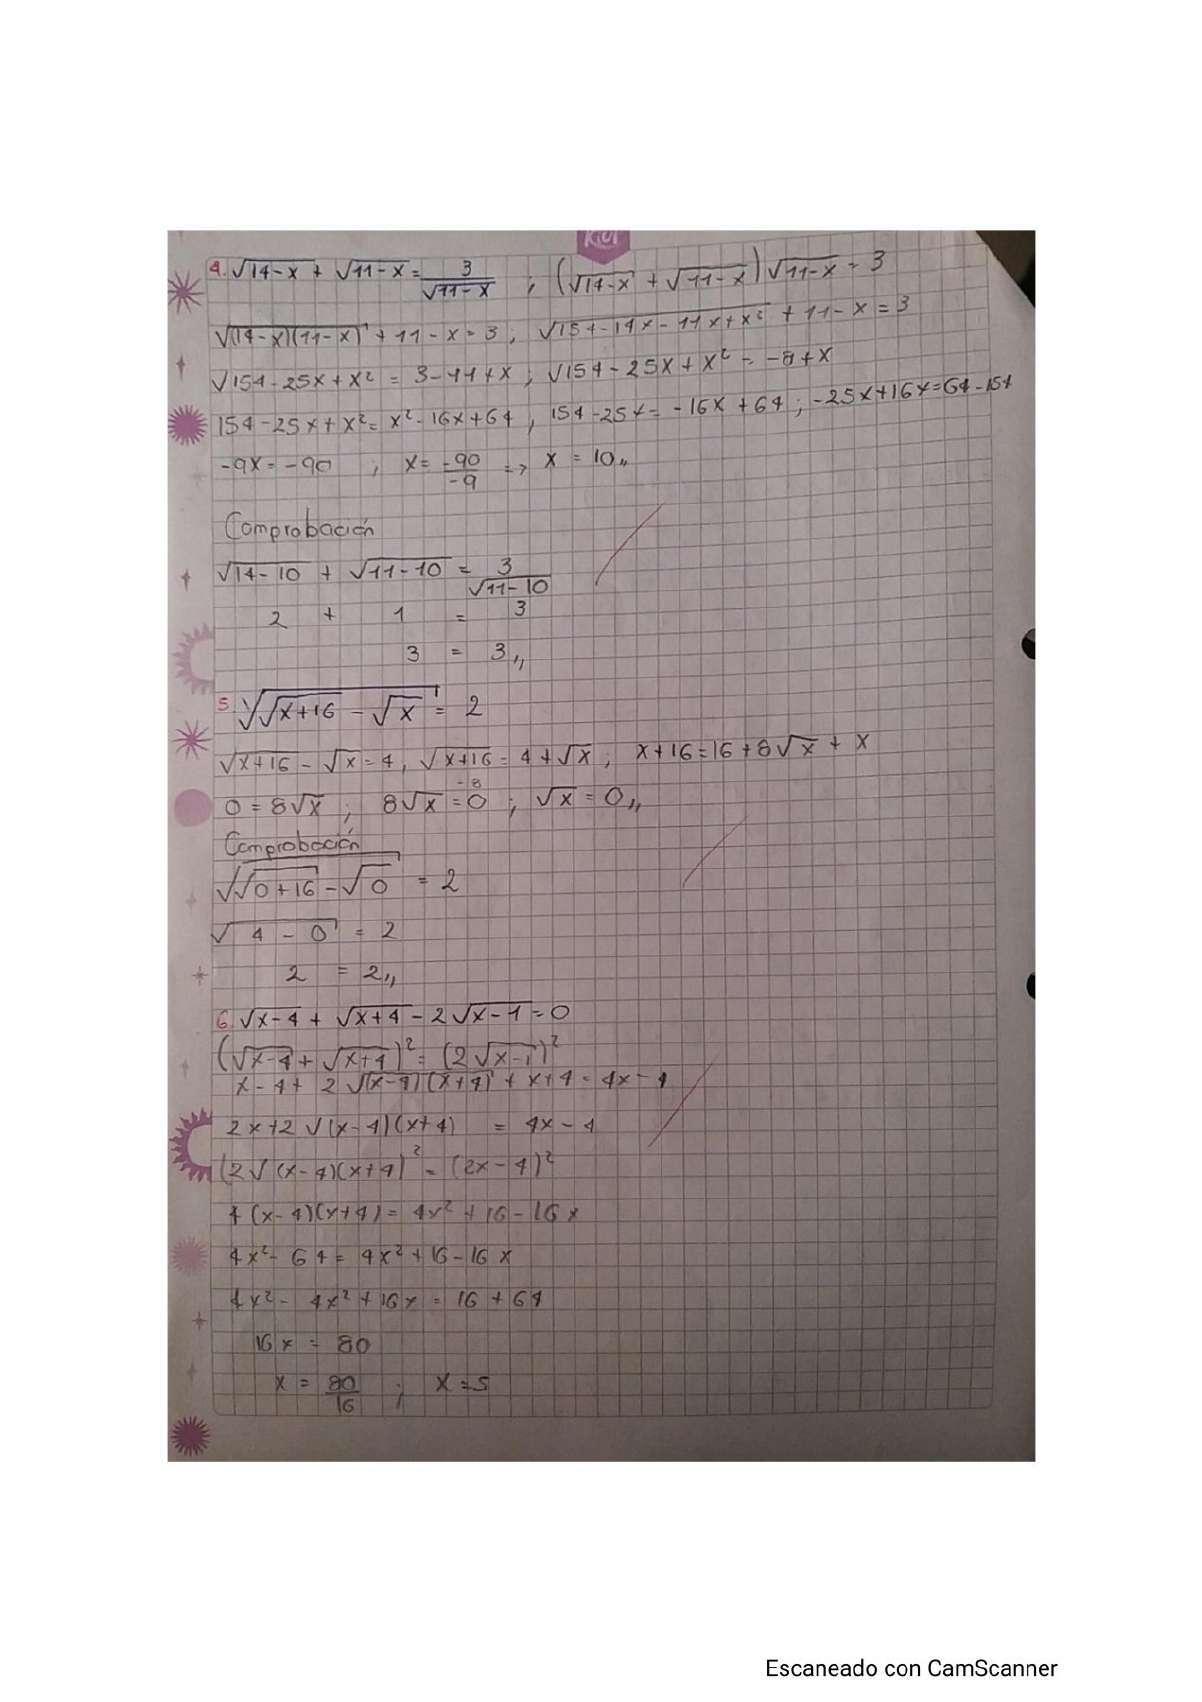 Kiut
4. √14-x + √11-x = 3/√11-x ; (√14-x + √11-x) √11-x = 3
√(14-x)(11-x) + 11-x = 3 ; √154-14x-11x+x² + 11-x = 3
√154-25x+x² = 3-11+x ; √154-25x+x² = -8+x
154-25x+x² = x²-16x+64 ; 154-25x = -16x+64 ; -25x+16x=64-154
-9x = -90 ; x = -90/-9 => x = 10,,
Comprobación
√14-10 + √11-10 = 3/√11-10
2 + 1 = 3
3 = 3,,
5. √√x+16 - √x = 2
√x+16 - √x = 4, √x+16 = 4+√x ; x+16=16+8√x + x
0 = 8√x ; 8√x = 0 -8 ; √x = 0,,
Comprobación
√√0+16 - √0 = 2
√4 - 0 = 2
2 = 2,,
6. √x-4 + √x+4 - 2√x-1 = 0
(√x-4 + √x+4)² = (2√x-1)²
x-4+ 2√(x-4)(x+4) + x+4 = 4x-4
2x+2√(x-4)(x+4) = 4x-4
(2√(x-4)(x+4)² = (2x-4)²
4(x-4)(x+4) = 4x²+16-16x
4x²-64 = 4x²+16-16x
4x²-4x²+16x = 16+64
16x = 80
x = 80/16 ; x=5
Escaneado con CamScanner